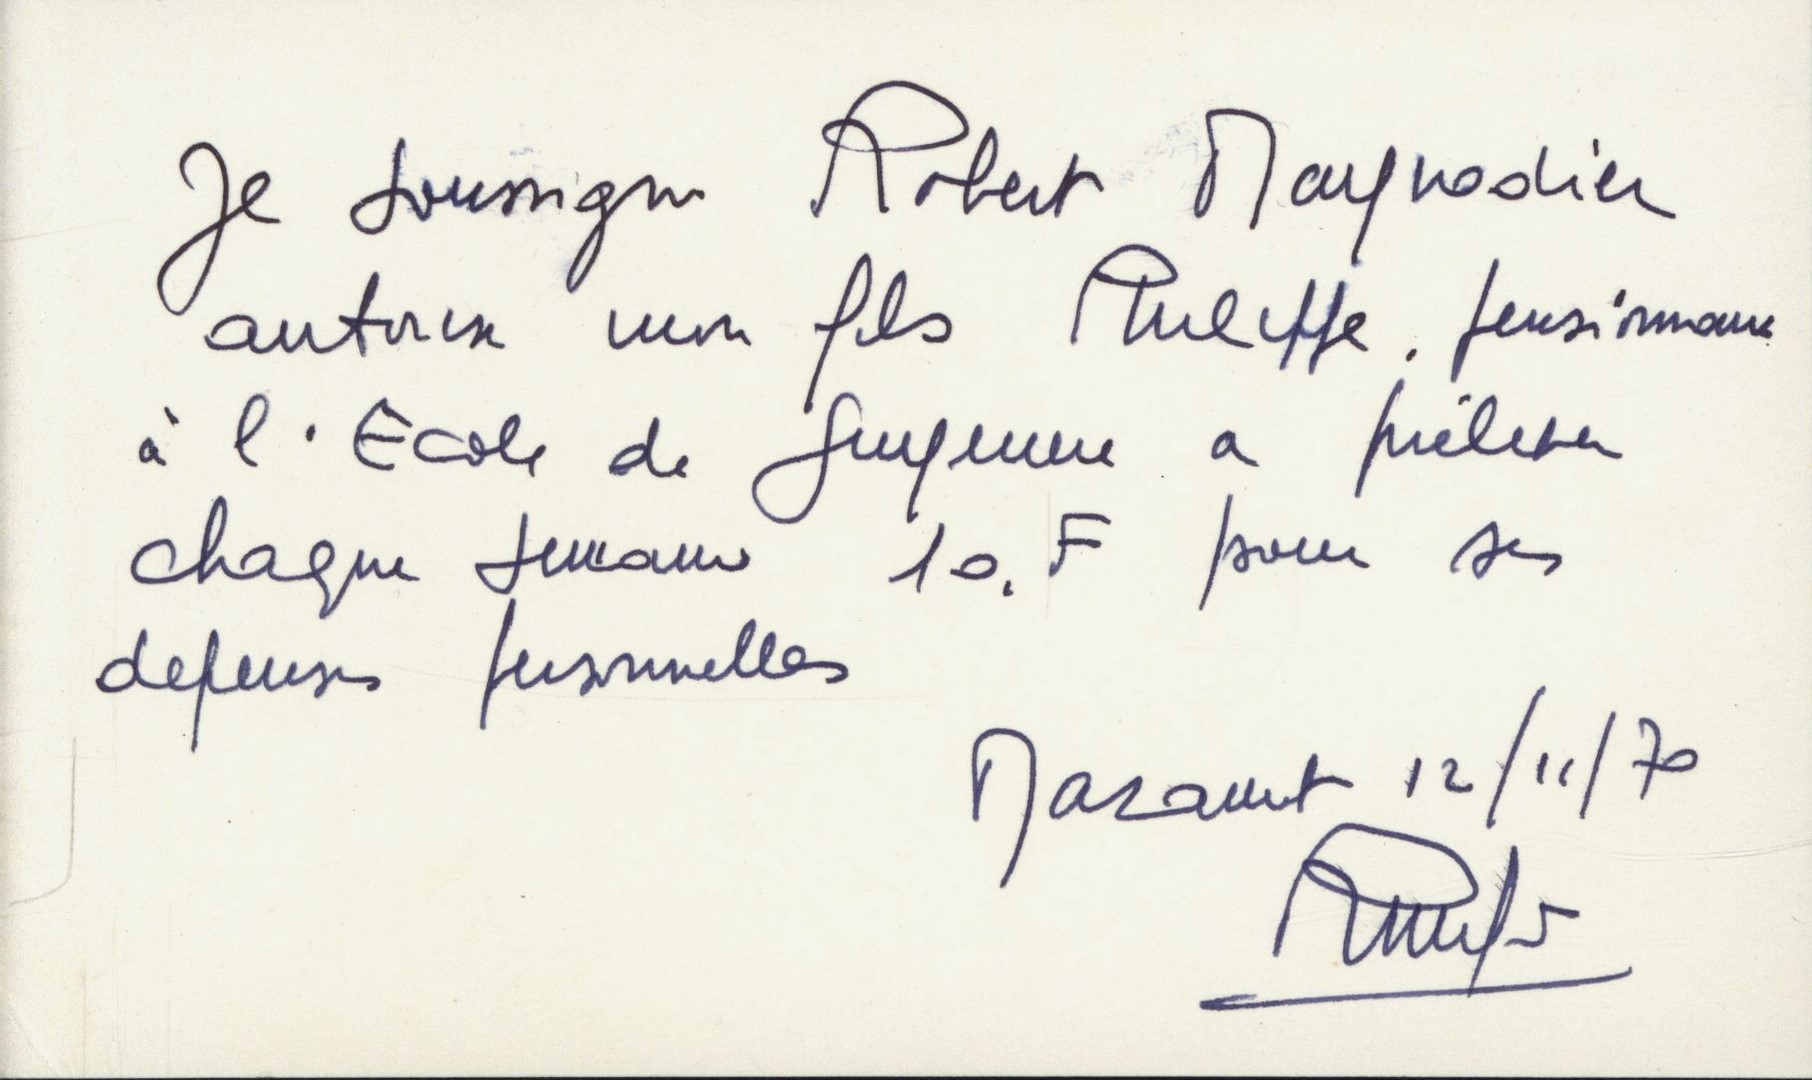 Je soussigné Robert Maynadier
autorise mon fils Philippe, pensionnaire
à l'Ecole de a prélever
chaque semaine 10.F pour ses
depenses personnelles
Mazamet 12/11/70